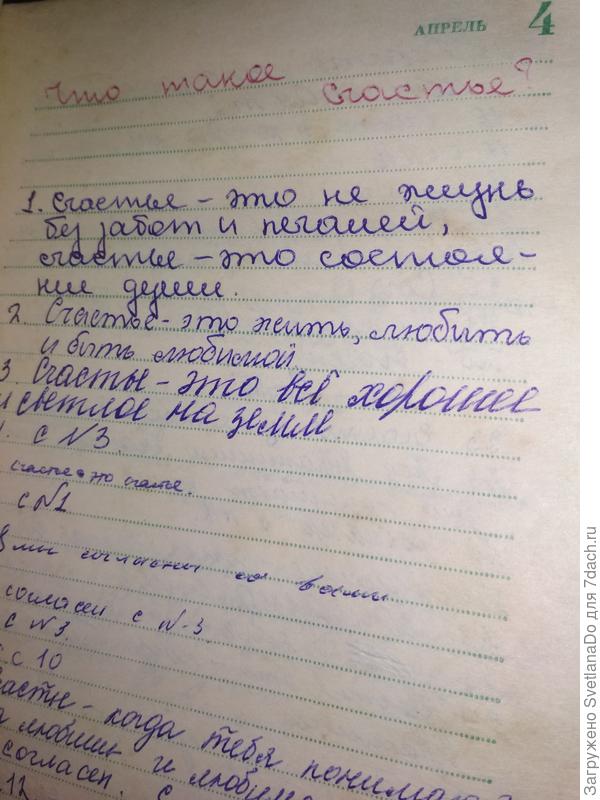 АПРЕЛЬ 4
Что такое счастье?
1. Счастье - это не жизнь
без забот и печалей,
счастье - это состоя-
ние души.
2. Счастье - это жить, любить
и быть любимой.
3 Счастье - это всё хорошее
и светлое на земле.
с №3.
счастье это счастье.
с №1
мы согласны со всеми
согласен с №3.
с №3
с 10
когда тебя понимают
любишь и
согласен. с
12
Загружено SvetlanaDo для 7dach.ru